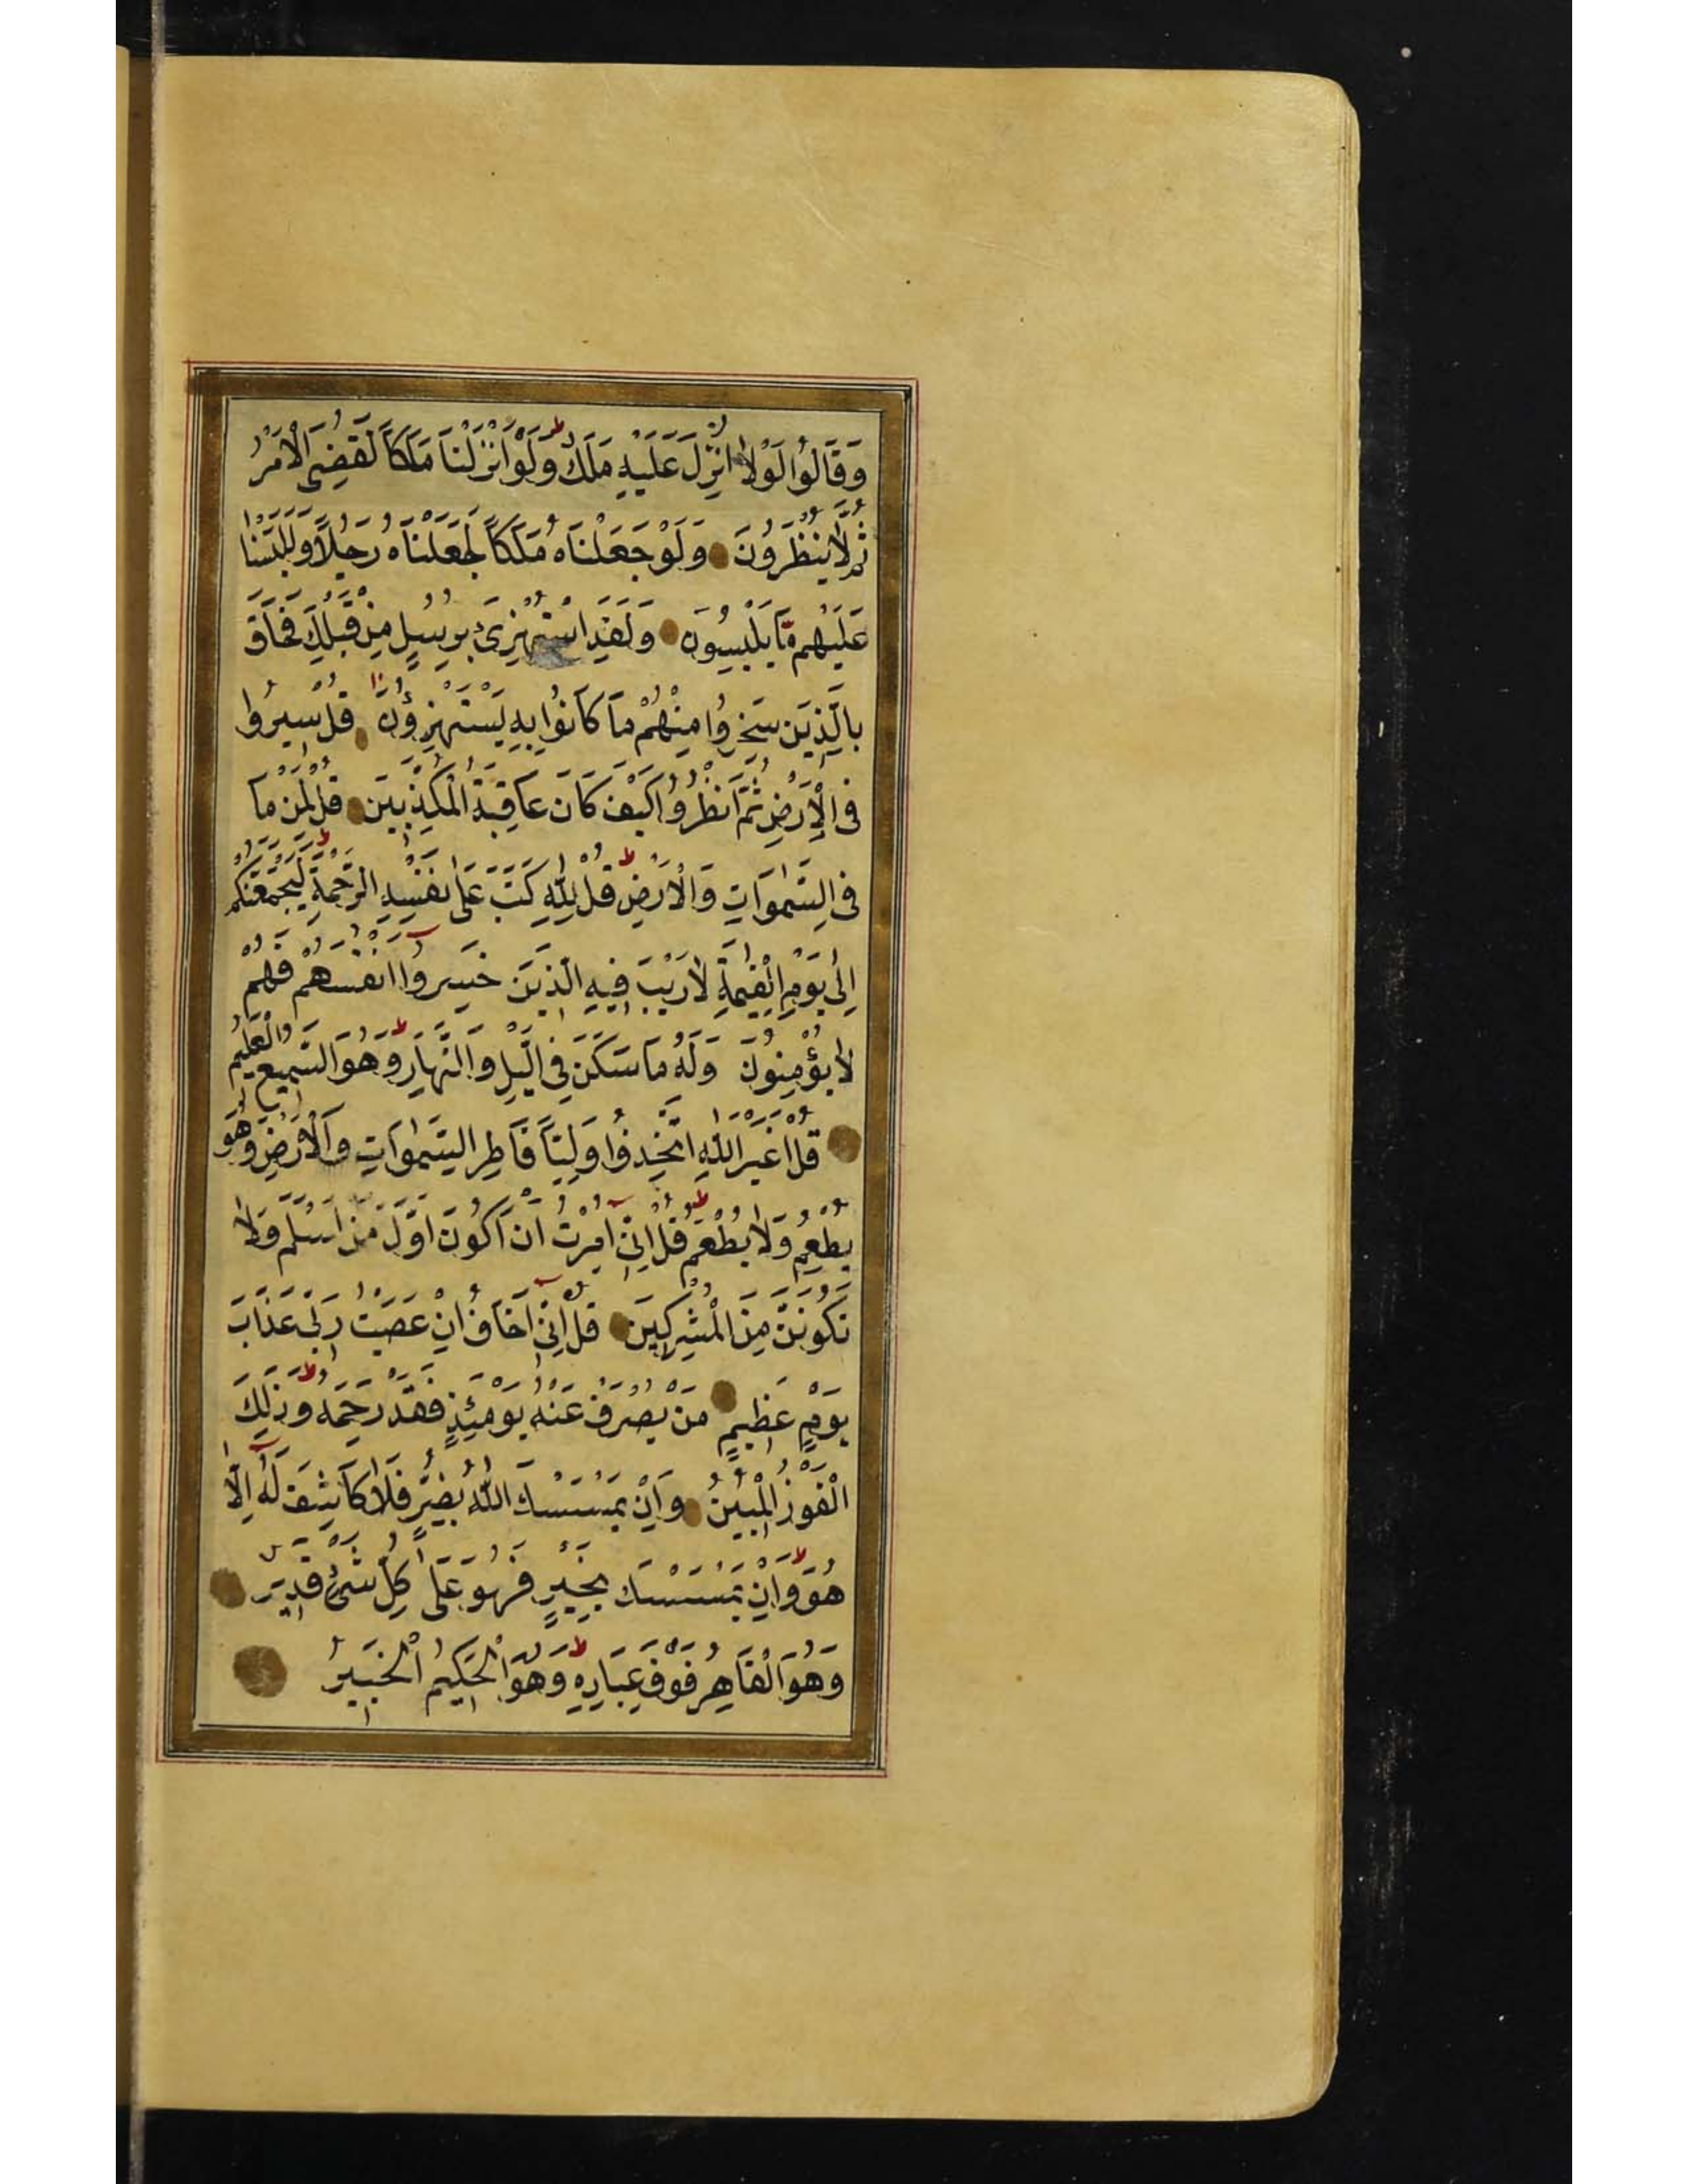 وَقَالُوا لَوْلَا اُنْزِلَ عَلَيْهِ مَلَكٌ وَلَوْ اَنْزَلْنَا مَلَكًا لَقُضِىَ الْاَمْرُ
ثُمَّ لَا يُنْظَرُونَ وَلَوْ جَعَلْنَاهُ مَلَكًا لَجَعَلْنَاهُ رَجُلًا وَلَلَبَسْنَا
عَلَيْهِمْ مَا يَلْبِسُونَ وَلَقَدِ اسْتُهْزِئَ بِرُسُلٍ مِنْ قَبْلِكَ فَحَاقَ
بِالَّذِينَ سَخِرُوا مِنْهُمْ مَا كَانُوا بِهِ يَسْتَهْزِؤُنَ قُلْ سِيرُوا
فِى الْاَرْضِ ثُمَّ انْظُرُوا كَيْفَ كَانَ عَاقِبَةُ الْمُكَذِّبِينَ قُلْ لِمَنْ مَا
فِى السَّمٰوَاتِ وَالْاَرْضِ ط قُلْ لِلّٰهِ كَتَبَ عَلٰى نَفْسِهِ الرَّحْمَةَ ط لَيَجْمَعَنَّكُمْ
اِلٰى يَوْمِ الْقِيٰمَةِ لَا رَيْبَ فِيهِ الَّذِينَ خَسِرُوا اَنْفُسَهُمْ فَهُمْ
لَا يُؤْمِنُونَ وَلَهُ مَا سَكَنَ فِى الَّيْلِ وَالنَّهَارِ ط وَهُوَ السَّمِيعُ الْعَلِيمُ
قُلْ اَغَيْرَ اللّٰهِ اَتَّخِذُ وَلِيًّا فَاطِرِ السَّمٰوَاتِ وَالْاَرْضِ وَهُوَ
يُطْعِمُ وَلَا يُطْعَمُ ط قُلْ اِنِّى اُمِرْتُ اَنْ اَكُونَ اَوَّلَ مَنْ اَسْلَمَ وَلَا
تَكُونَنَّ مِنَ الْمُشْرِكِينَ قُلْ اِنِّى اَخَافُ اِنْ عَصَيْتُ رَبِّى عَذَابَ
يَوْمٍ عَظِيمٍ مَنْ يُصْرَفْ عَنْهُ يَوْمَئِذٍ فَقَدْ رَحِمَهُ ط وَذٰلِكَ
الْفَوْزُ الْمُبِينُ وَاِنْ يَمْسَسْكَ اللّٰهُ بِضُرٍّ فَلَا كَاشِفَ لَهُ اِلَّا
هُوَ ط وَاِنْ يَمْسَسْكَ بِخَيْرٍ فَهُوَ عَلٰى كُلِّ شَىْءٍ قَدِيرٌ
وَهُوَ الْقَاهِرُ فَوْقَ عِبَادِهِ ط وَهُوَ الْحَكِيمُ الْخَبِيرُ